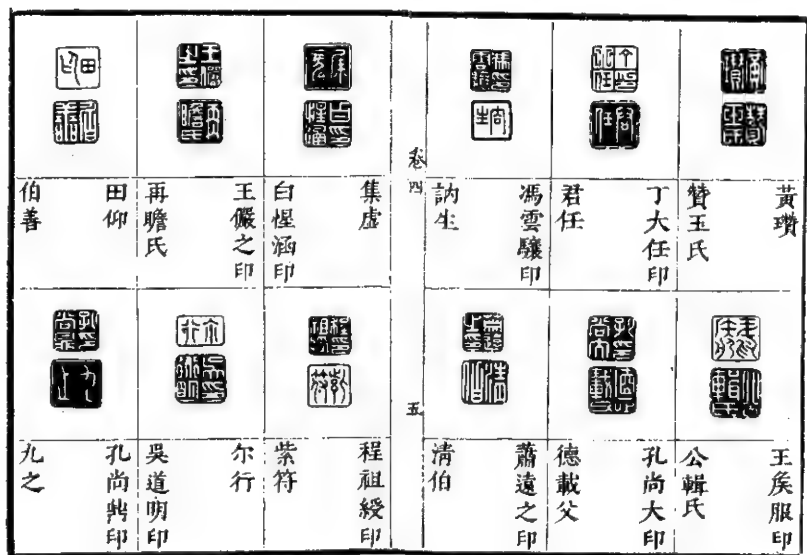 黃瓚
贊玉氏
丁大任印
君任
馮雲驤印
訥生
王矦服印
公輯氏
孔尚大印
德載父
蕭遠之印
清伯
卷四
五
集虛
白惺涵印
王儼之印
再瞻氏
田仰
伯善
程祖綬印
紫符
尓行
吳道明印
孔尚㷛印
九之